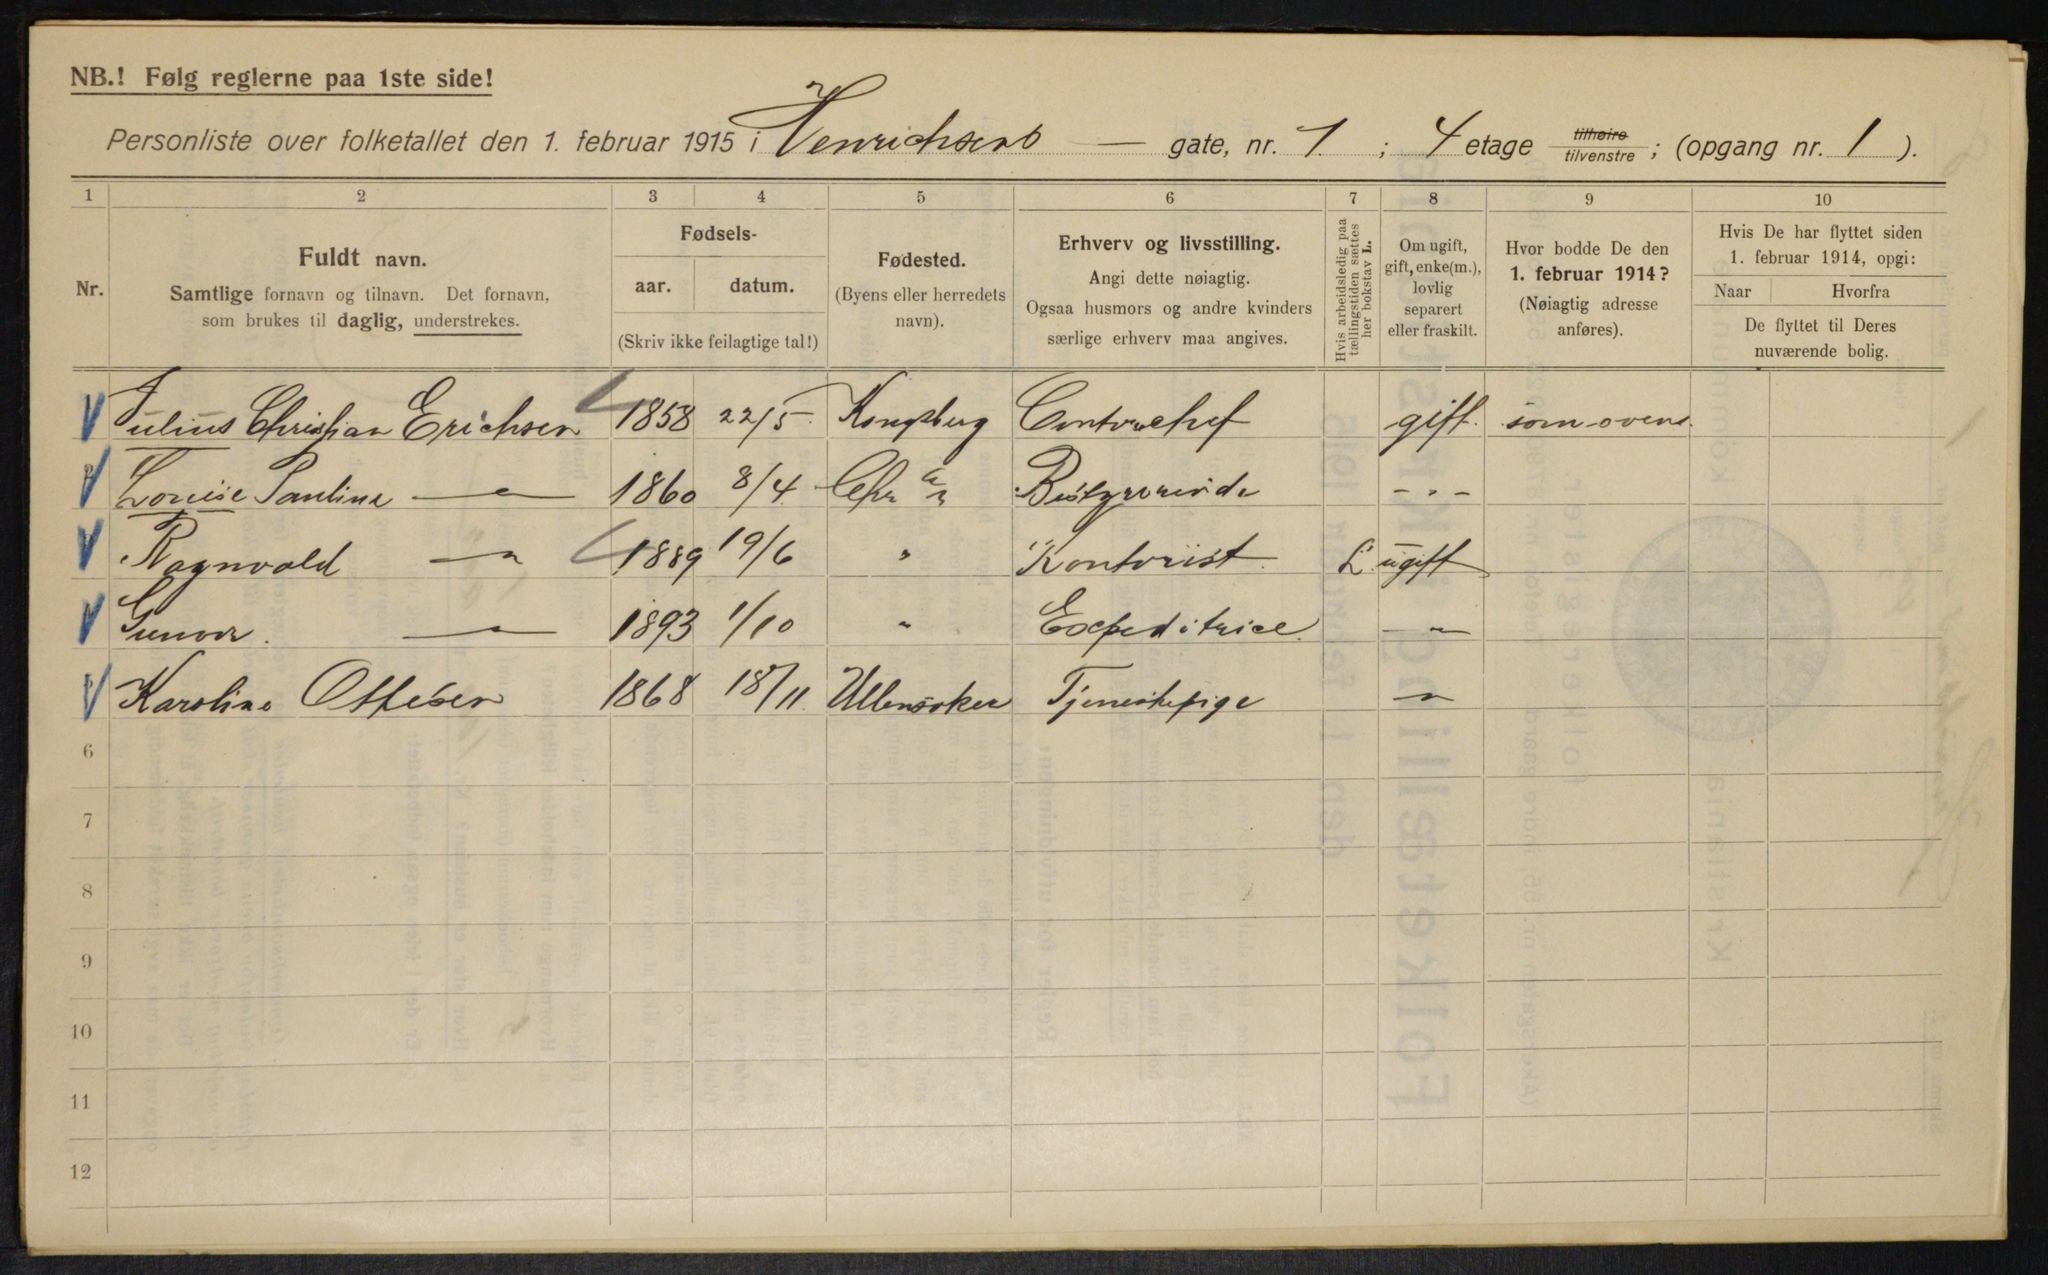 NB.! Følg reglerne paa 1ste side!
Personliste over folketallet den 1. februar 1915 i Henrichsens — gate, nr. 1. ; 4 etage tilhøire tilvenstre ; (opgang nr. 1 ).
1 2 3 4 5 6 7 8 9 10
Nr.
Fuldt navn.
Samtlige fornavn og tilnavn. Det fornavn,
som brukes til daglig, understrekes.
Fødsels-
aar. datum.
(Skriv ikke feilagtige tal!)
Fødested.
(Byens eller herredets
navn).
Erhverv og livsstilling.
Angi dette nøiagtig.
Ogsaa husmors og andre kvinders
særlige erhverv maa angives.
Hvis arbeidsledig paa
tællingstiden sættes
her bokstav L.
Om ugift,
gift, enke(m.),
lovlig
separert
eller fraskilt.
Hvor bodde De den
1. februar 1914?
(Nøiagtig adresse
anføres).
Hvis De har flyttet siden
1. februar 1914, opgi:
Naar Hvorfra
De flyttet til Deres
nuværende bolig.
Julius Christian Erichsen 1858 22/5 Kongsberg Contorchef gift. som ovens
Louise Pauline — " — 1860 8/4 Chr a Bestyrerinde - " -
Ragnvald — " 1889 19/6 " Kontorist L ugift
Gunvor. — " — 1893 1/10 " Expeditrice. — " —
Karoline Ottesen 1868 18/11 Ullensaker Tjenestepige "
6
7
8
9
10
11
12